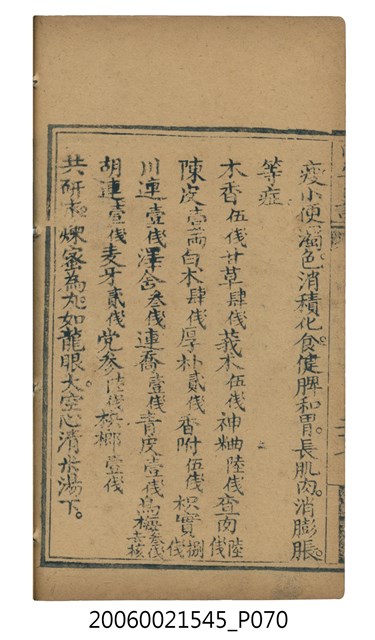 瘦小便濁色。消積化食。健脾和胃。長肌肉。消膨脹。
等症
木香伍伐甘草肆伐莪朮伍伐神粬陸伐查肉陸伐
陳皮壹両白朮肆伐厚朴貳伐香附伍伐枳實捌伐
川連壹伐澤舍叁伐連喬壹伐青皮壹伐烏梅叁伐去核
胡連壹伐麦牙貳伐党参陸伐梹榔壹伐
共研末。煉蜜為丸。如龍眼大。空心清米湯下。
20060021545_P070